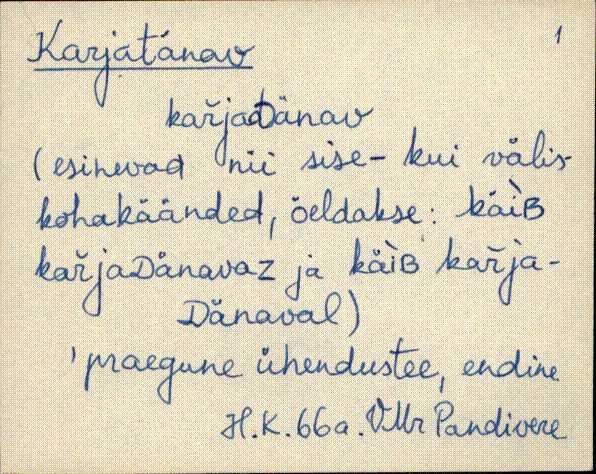 Karjatänav
1
kařjaDänav
(esinevad nii sise- kui välis-
kohakäänded, öeldakse: käìB
kařjaDänavaz ja käìB kařja-
Dänaval)
'praegune ühendustee, endine
H.K. 66a. VMr Pandivere